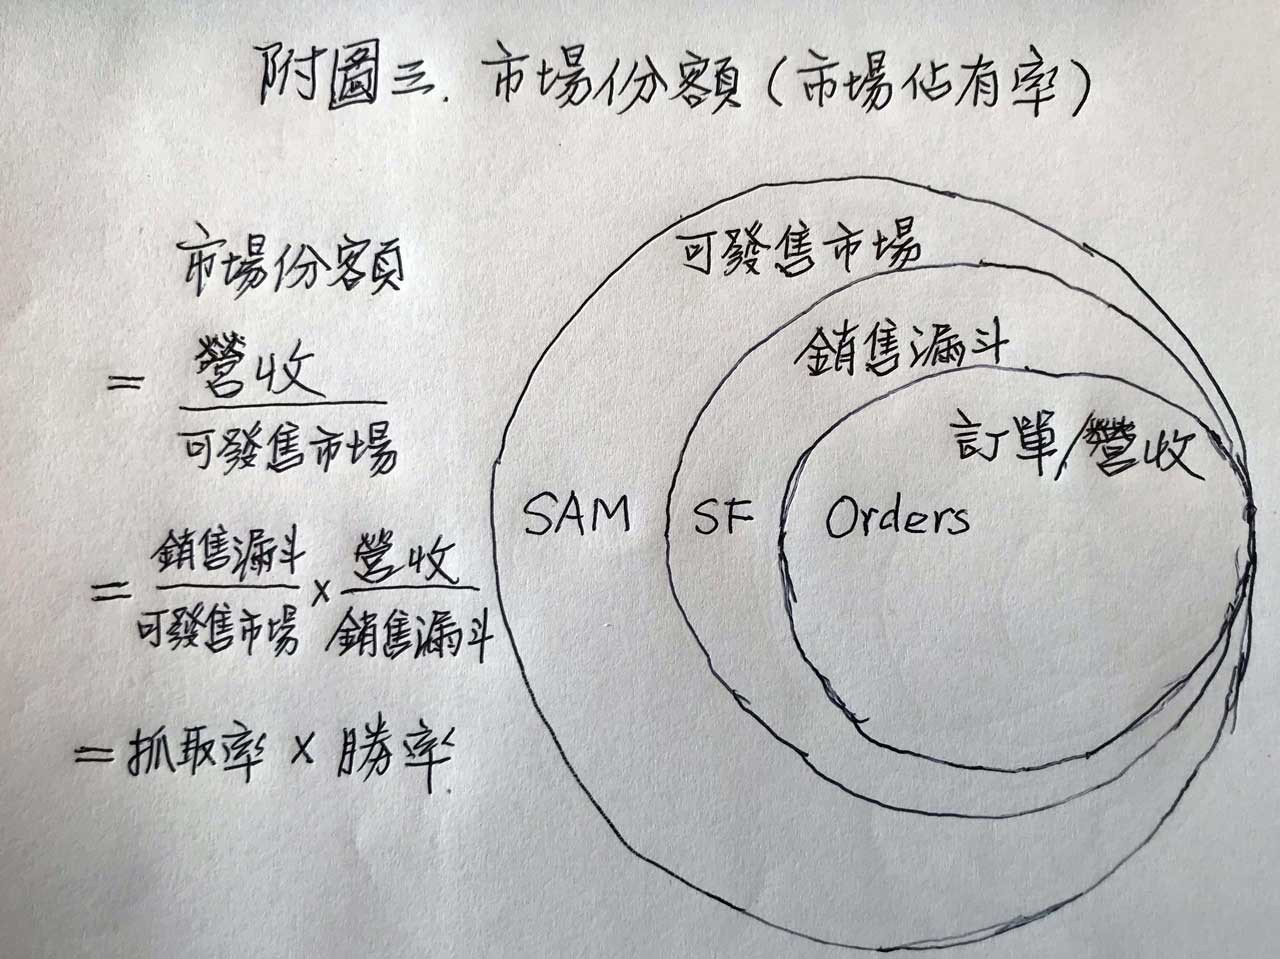 附圖三. 市場份額(市場佔有率)
市場份額
= 營收
可發售市場
= 銷售漏斗 × 營收
可發售市場 銷售漏斗
= 抓取率 × 勝率
可發售市場
銷售漏斗
訂單/營收
SAM SF Orders